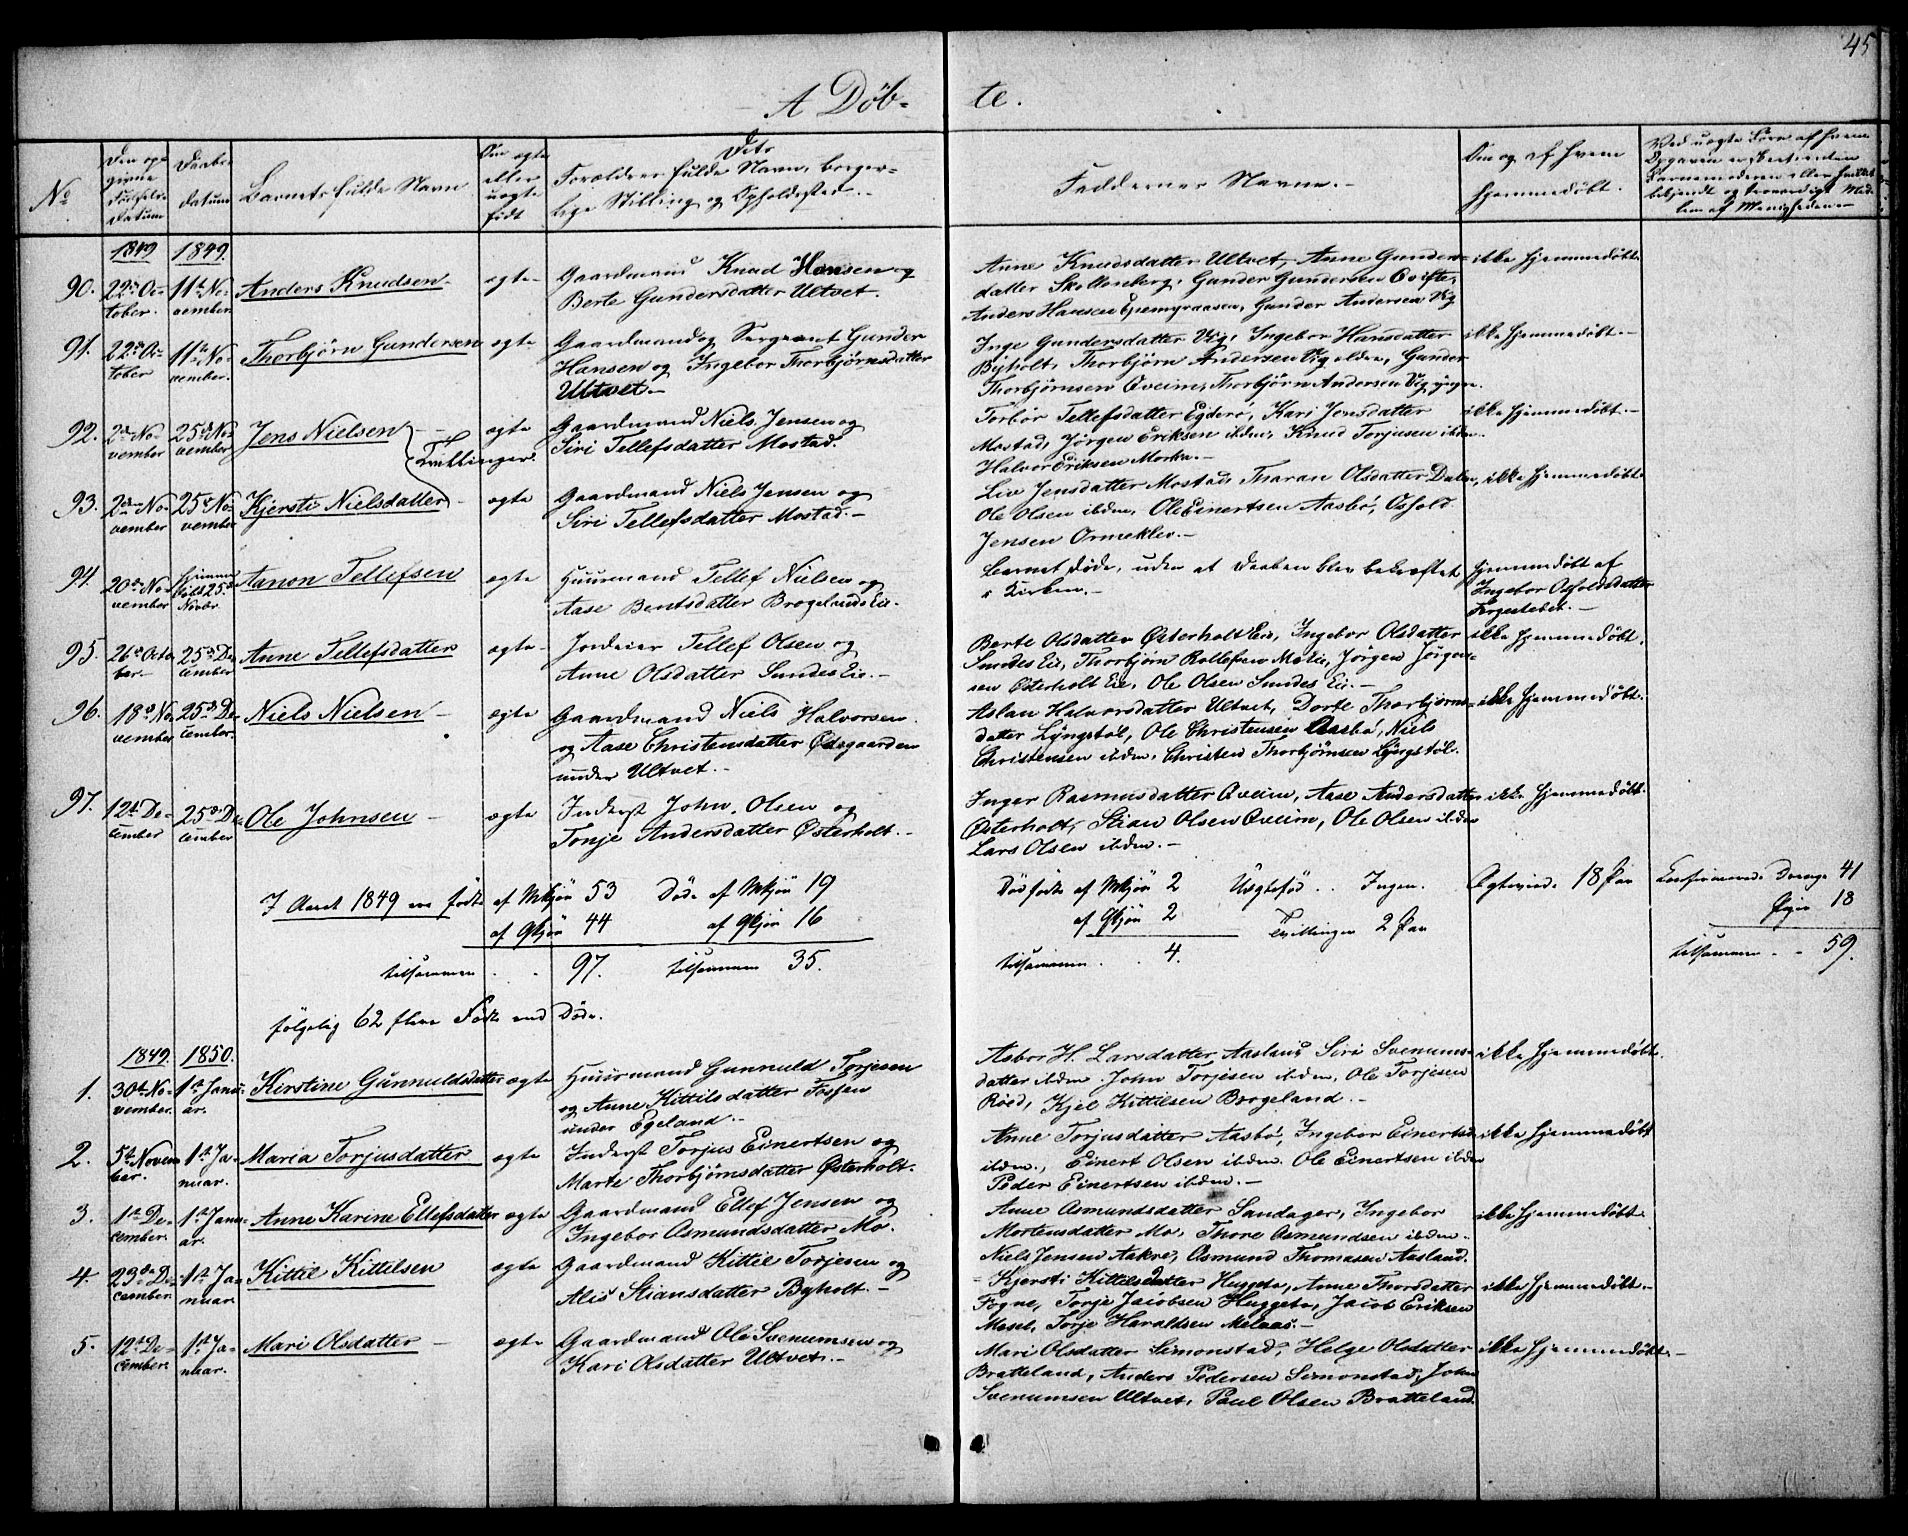 45
A Döb-
te.
No
Den op-
givne
Födsels-
Datum
Daabs-
datum
Barnets fulde Navn
Om ægte
eller
uægte
födt
Dets
Forældres fulde Navn, borger-
lige Stilling og Opholdssted.-
Faddernes Navne.-
Om og af hvem
hjemmedöbt.
1849 1849.
90. 22de Oc-
tober. 11te No-
vember. Anders Knudsen. ægte- Gaardmand Knud Hansen og
Berte Gundersdatter Ultvet.
Anne Knudsdatter Ultvet, Anne Gunders-
datter Skollenberg, Gunder Gundersen
Anders Hansen Gunder Andersen Vig
ikke hjemmedöbt.
91. 22de Oc-
tober 11te No-
vember. Thorbjörn Gundersen ægte Gaardmand og Sergeant Gunder
Hansen og Ingebor Thorbjörnsdatter
Ultvet.-
Inge Gundersdatter Vig, Ingebor Hansdatter
Byholt, Thorbjörn Andersen Vig ældre, Gunder
Thorbjörnsen Oveim, Thorbjörn Andersen Vig yngre.
ikke hjemmedöbt.-
92. 2den No-
vember 25de No-
vember Jens Nielsen ægte Gaardmand Niels Jensen og
Siri Tellefsdatter Mostad.
Tvillinger.
Torbör Tellefsdatter Egderö, Kari Jensdatter
Mostad, Jörgen Eriksen ibdm, Knud Torjusen ibdm.
Halvor Eriksen Morka.-
ikke hjemmedöbt.-
93. 2den No-
vember 25de No-
vember Kjersti Nielsdatter ægte Gaardmand Niels Jensen og
Siri Tellefsdatter Mostad.-
Liv Jensdatter Mostad, Tharan Olsdatter Dalen,
Ole Olsen ibdm, Ole Einertsen Aasbö, Osfold
Jensen Ormeklev.-
ikke hjemmedöbt.
94. 20de No-
vember hjemme
döbt 25de
Novbr. Aanon Tellefsen ægte Huusmand Tellef Nielsen og
Aase Bentsdatter Brogelands Eie.
Barnet döde, uden at Daaben blev bekræftet
i Kirken.-
hjemmedöbt af
Ingebor Osfoldsdatter
95. 26de Octo-
ber.- 25de De-
cember Anne Tellefsdatter ægte- Jordeier Tellef Olsen og
Anne Olsdatter Sundes Eie.-
Berte Olsdatter Österholt Eie, Ingebor Olsdatter
Sundes Eie, Thorbjörn Rollefsen Jörgen Jörgen-
sen Österholt Eie, Ole Olsen Sundes Eie.-
ikke hjemmedöbt.
96. 18de No-
vember 25de De-
cember. Niels Nielsen- ægte Gaardmand Niels Halvorsen
og Aase Christensdatter Ödegaarden
under Ultvet.-
Aslau Halvorsdatter Ultvet, Dorte Thorbjörns-
datter Lyngstöl, Ole Christensen Aasbö, Niels
Christensen ibdm. Christen Thorbjörnsen Lyngstöl.
ikke hjemmedöbt.
97. 12te De-
cember 25de De-
cember Ole Johnsen- ægte Inderst John Olsen og
Tonje Andersdatter Österholt.-
Inger Rasmusdatter Oveim, Aase Andersdatter
Österholt, Stian Olsen Oveim, Ole Olsen ibdm
Lars Olsen ibdm.-
ikke hjemmedöbt.
I Aaret 1849 ere födte af Mkjön 53 Döde af Mkjön 19
af Qkjön 44 af Qkjön 16
tilsammen . . 97. tilsammen 35.
Dödfödte af Mkjön 2 Uægtefödt . . Ingen. Ægteviede 18 Par Confirmerede Drenge 41
af Qkjön 2 Tvillinger 2 Par Piger 18
tilsammen . . 4. tilsammen . - 59.
fölgelig 62 flere Födte end Döde.
1849. 1850.
1. 30te No-
vember. 1ste Janu-
ar. Kirstine Gunnuldsdatter ægte Huusmand Gunnuld Torjesen
og Anne Kittilsdatter Fossen
under Egeland.-
Asbor H. Larsdatter Aasland, Siri Svenums-
datter ibdm. John Torjesen ibdm, Ole Torjesen
Röed, Kjel Kittilsen Borgeland.-
ikke hjemmedöbt.
2. 5te Novem-
ber. 1ste Ja-
nuar. Maria Torjusdatter ægte Inderst Torjus Einertsen og
Marte Thorbjörnsdatter Österholt.
Anne Torjusdatter Aasbö, Ingebor Einertsd.
ibdm., Einert Olsen ibdm. Ole Einertsen ibdm
Peder Einertsen ibdm.-
ikke hjemmedöbt
3. 1ste De-
cember. 1ste Janu-
ar. Anne Karine Ellefsdatter ægte Gaardmand Ellef Jensen og
Ingebor Osmundsdatter Mo.
Anne Osmundsdatter Sandager, Ingebor
Mortensdatter Mo, Thore Osmundsen ibdm.
Niels Jensen Aakre, Osmund Thomasen Aasland.
ikke hjemmedöbt.
4 23de De-
cember. 1ste Ja-
nuar. Kittil Kittilsen ægte Gaardmand Kittil Torjesen og
Alis Stiansdatter Byholt.-
Kjersti Kittilsdatter Huggeto, Anne Thorsdatter
Fogne, Torje Jacobsen Huggeto, Jacob Eriksen
Mosel, Torje Haraldsen Melaas.-
ikke hjemmedöbt.-
5. 12te De-
cember. 1ste Ja-
nuar. Mari Olsdatter- ægte Gaardmand Ole Svenumsen og
Kari Olsdatter Ultvet.-
Mari Olsdatter Simonstad, Helge Olsdatter
Bratteland, Anders Pedersen Simonstad, John
Svenumsen Ultvet, Paul Olsen Bratteland.
ikke hjemmedöbt.-